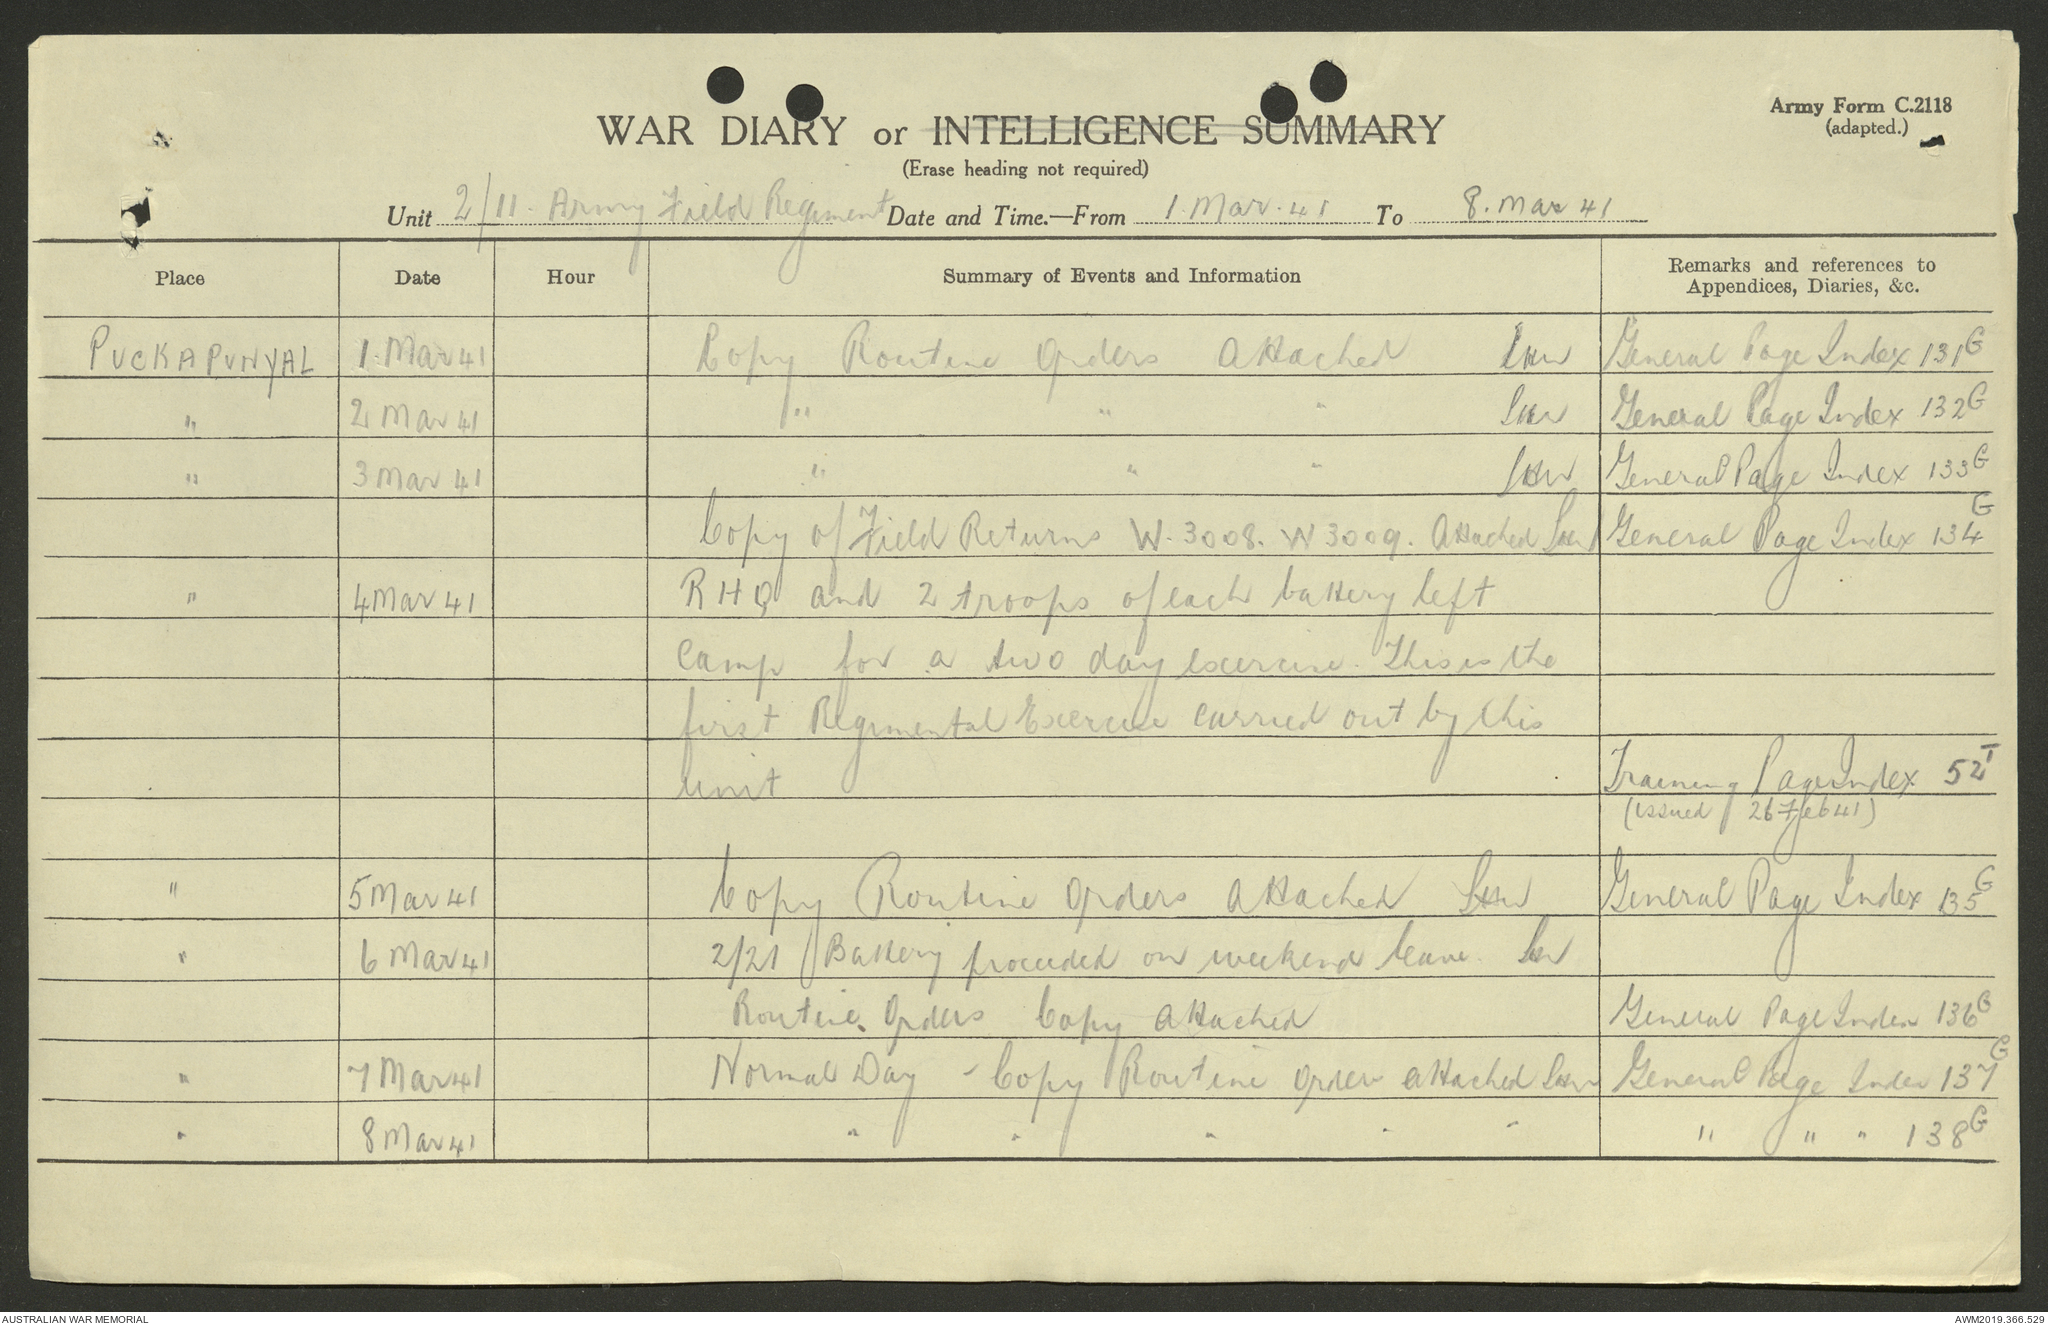 Army Form C.2118
(adapted.)
WAR DIARY or INTELLIGENCE SUMMARY
(Erase heading not required)
Unit 2/11. Army Field Regiment Date and Time.—From 1. Mar. 41 To 8. Mar 41
Place Date Hour Summary of Events and Information Remarks and references to
Appendices, Diaries, &c.
PUCKAPUNYAL 1. Mar 41 Copy Routine Orders Attached General Page Index 131G
" 2 Mar 41 " " " General Page Index 132G
" 3 Mar 41 " " " General Page Index 133G
Copy of Field Returns W. 3008. W 3009. Attached General Page Index 134G
" 4 Mar 41 RHQ and 2 troops of each battery left
camp for a two day exercise. This is the
first Regimental Exercise carried out by this
unit Training Page Index 52T
(issued 26 Feb 41)
" 5 Mar 41 Copy Routine Orders Attached General Page Index 135G
" 6 Mar 41 2/21 Battery proceeded on weekend leave.
Routine Orders Copy Attached General Page Index 136G
" 7 Mar 41 Normal Day - Copy Routine Order attached General Page Index 137G
" 8 Mar 41 " " " " " " " " 138G
AUSTRALIAN WAR MEMORIAL AWM2019.366.529